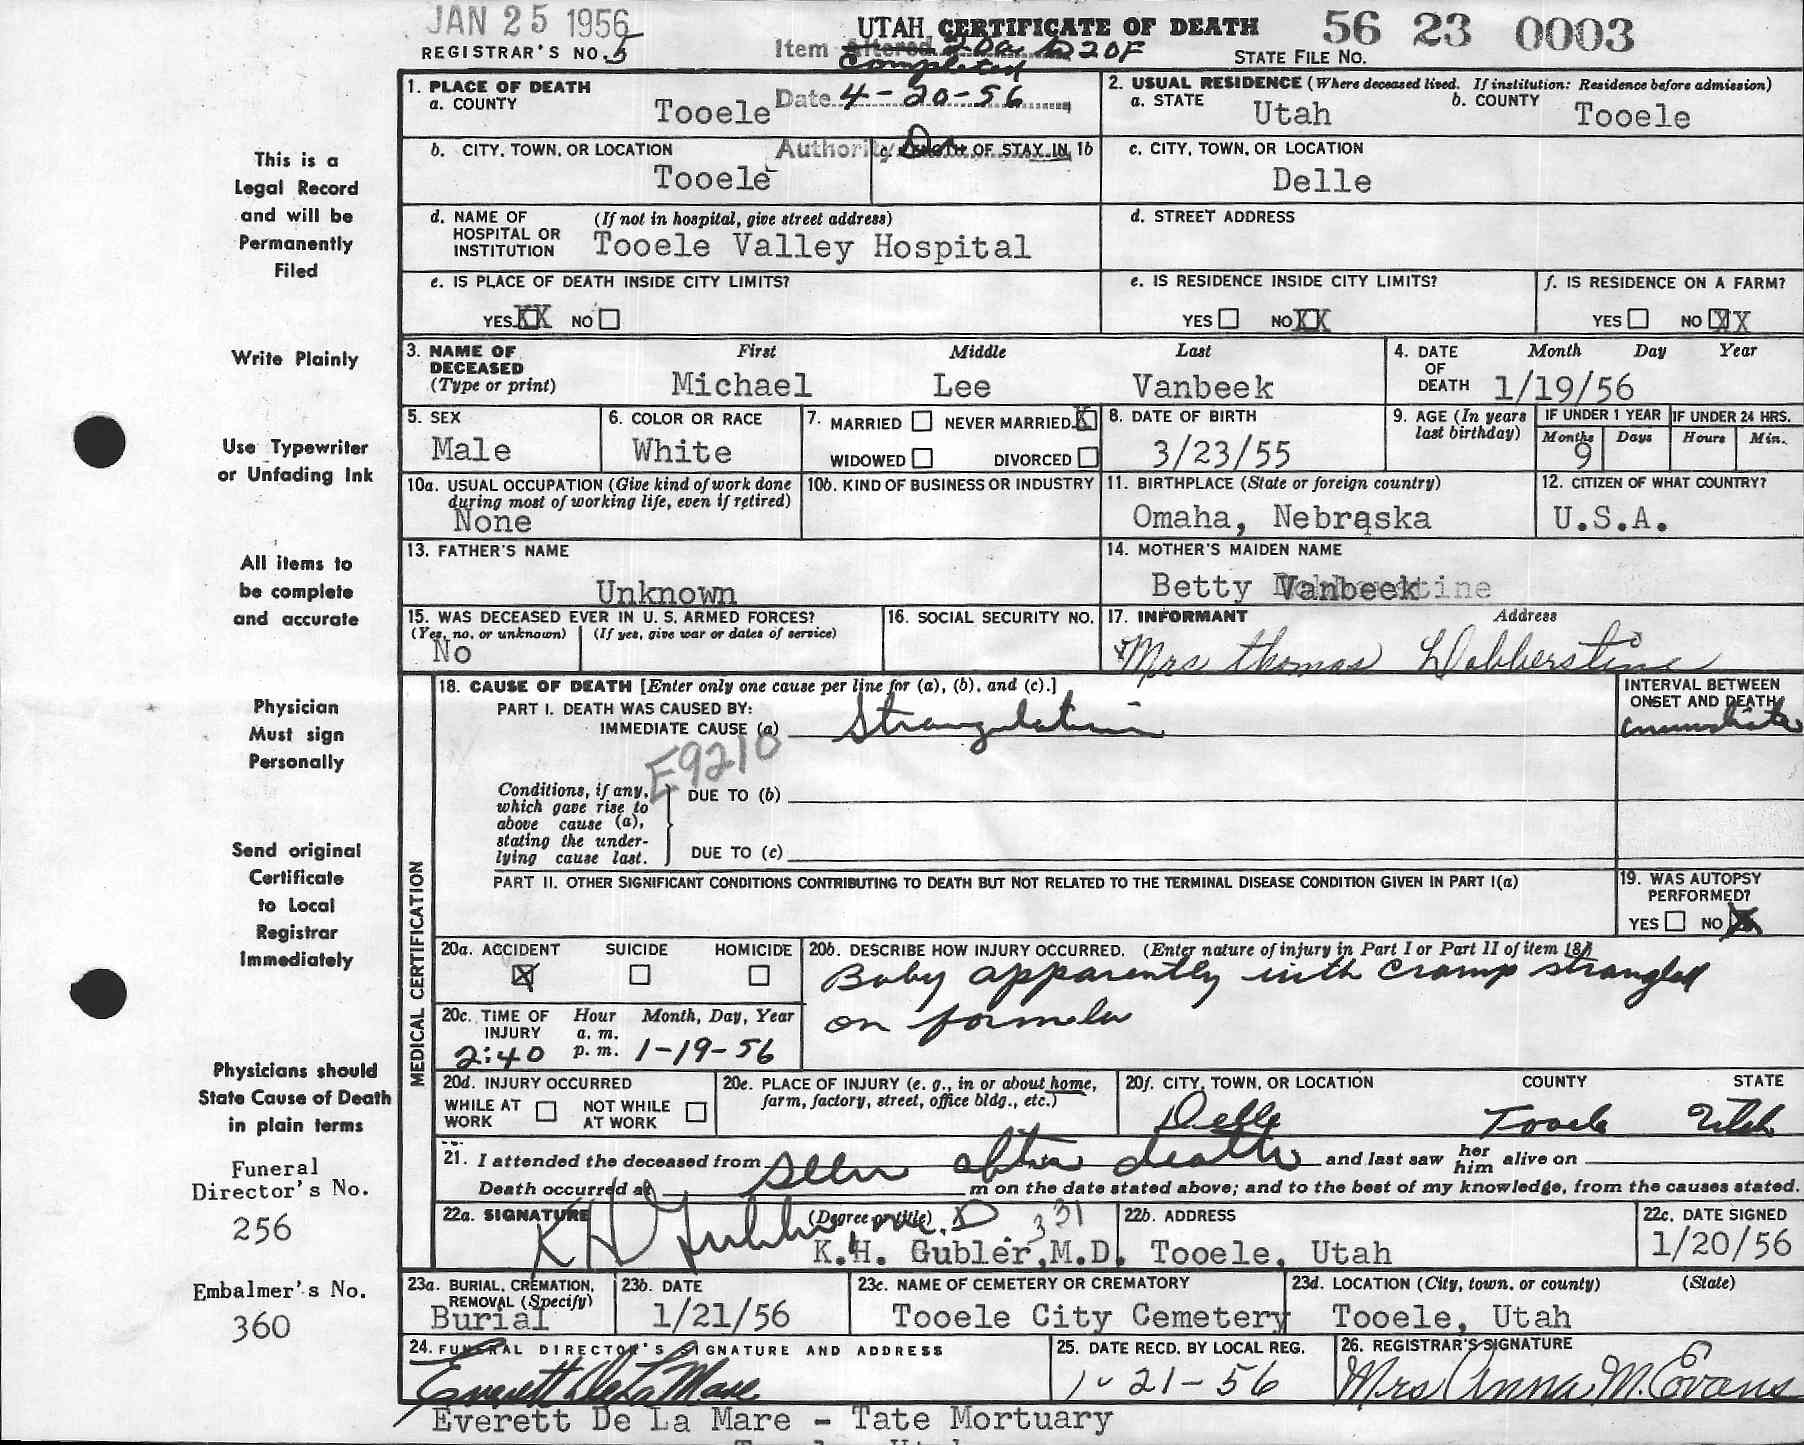 JAN 25 1956
UTAH CERTIFICATE OF DEATH 56 23 0003
REGISTRAR'S NO. 5
Item Altered 20a to 20F
STATE FILE NO.
Completed
Date 4-20-56
Authority
1. PLACE OF DEATH
a. COUNTY
Tooele
2. USUAL RESIDENCE (Where deceased lived. If institution: Residence before admission)
a. STATE
Utah
b. COUNTY
Tooele
b. CITY, TOWN, OR LOCATION
Tooele
OF STAY IN 1b
c. CITY, TOWN, OR LOCATION
Delle
d. NAME OF HOSPITAL OR INSTITUTION
(If not in hospital, give street address)
Tooele Valley Hospital
d. STREET ADDRESS
e. IS PLACE OF DEATH INSIDE CITY LIMITS?
YES XX NO
e. IS RESIDENCE INSIDE CITY LIMITS?
YES NO XX
f. IS RESIDENCE ON A FARM?
YES NO XX
3. NAME OF DECEASED
(Type or print)
First Middle Last
Michael Lee Vanbeek
4. DATE OF DEATH
Month Day Year
1/19/56
5. SEX
Male
6. COLOR OR RACE
White
7. MARRIED NEVER MARRIED X
WIDOWED DIVORCED
8. DATE OF BIRTH
3/23/55
9. AGE (In years last birthday)
IF UNDER 1 YEAR IF UNDER 24 HRS.
Months Days Hours Min.
9
10a. USUAL OCCUPATION (Give kind of work done during most of working life, even if retired)
None
10b. KIND OF BUSINESS OR INDUSTRY
11. BIRTHPLACE (State or foreign country)
Omaha, Nebraska
12. CITIZEN OF WHAT COUNTRY?
U.S.A.
13. FATHER'S NAME
Unknown
14. MOTHER'S MAIDEN NAME
Betty Vanbeek
15. WAS DECEASED EVER IN U. S. ARMED FORCES?
(Yes, no, or unknown) (If yes, give war or dates of service)
No
16. SOCIAL SECURITY NO.
17. INFORMANT Address
Mrs Thomas Dobberstine
18. CAUSE OF DEATH [Enter only one cause per line for (a), (b), and (c).]
PART I. DEATH WAS CAUSED BY:
IMMEDIATE CAUSE (a) Strangulation
INTERVAL BETWEEN ONSET AND DEATH
immediate
E9210
Conditions, if any, which gave rise to above cause (a), stating the underlying cause last.
DUE TO (b)
DUE TO (c)
PART II. OTHER SIGNIFICANT CONDITIONS CONTRIBUTING TO DEATH BUT NOT RELATED TO THE TERMINAL DISEASE CONDITION GIVEN IN PART I(a)
19. WAS AUTOPSY PERFORMED?
YES NO X
MEDICAL CERTIFICATION
20a. ACCIDENT SUICIDE HOMICIDE
X
20b. DESCRIBE HOW INJURY OCCURRED. (Enter nature of injury in Part I or Part II of item 18.)
Baby apparently with cramp strangled
on formula
20c. TIME OF INJURY
Hour Month, Day, Year
a. m.
p. m.
2:40 1-19-56
20d. INJURY OCCURRED
WHILE AT WORK NOT WHILE AT WORK
20e. PLACE OF INJURY (e. g., in or about home, farm, factory, street, office bldg., etc.)
20f. CITY, TOWN, OR LOCATION COUNTY STATE
Delle Tooele Utah
21. I attended the deceased from seen after death and last saw her him alive on
Death occurred at m on the date stated above; and to the best of my knowledge, from the causes stated.
22a. SIGNATURE (Degree or title)
K H Gubler M.D. 331
K.H. Gubler, M.D.
22b. ADDRESS
Tooele, Utah
22c. DATE SIGNED
1/20/56
23a. BURIAL, CREMATION, REMOVAL (Specify)
Burial
23b. DATE
1/21/56
23c. NAME OF CEMETERY OR CREMATORY
Tooele City Cemetery
23d. LOCATION (City, town, or county) (State)
Tooele, Utah
24. FUNERAL DIRECTOR'S SIGNATURE AND ADDRESS
Everett De La Mare
25. DATE RECD. BY LOCAL REG.
1-21-56
26. REGISTRAR'S SIGNATURE
Mrs Anna M. Evans
Everett De La Mare - Tate Mortuary
Tooele, Utah
This is a
Legal Record
and will be
Permanently
Filed
Write Plainly
Use Typewriter
or Unfading Ink
All items to
be complete
and accurate
Physician
Must sign
Personally
Send original
Certificate
to Local
Registrar
Immediately
Physicians should
State Cause of Death
in plain terms
Funeral
Director's No.
256
Embalmer's No.
360